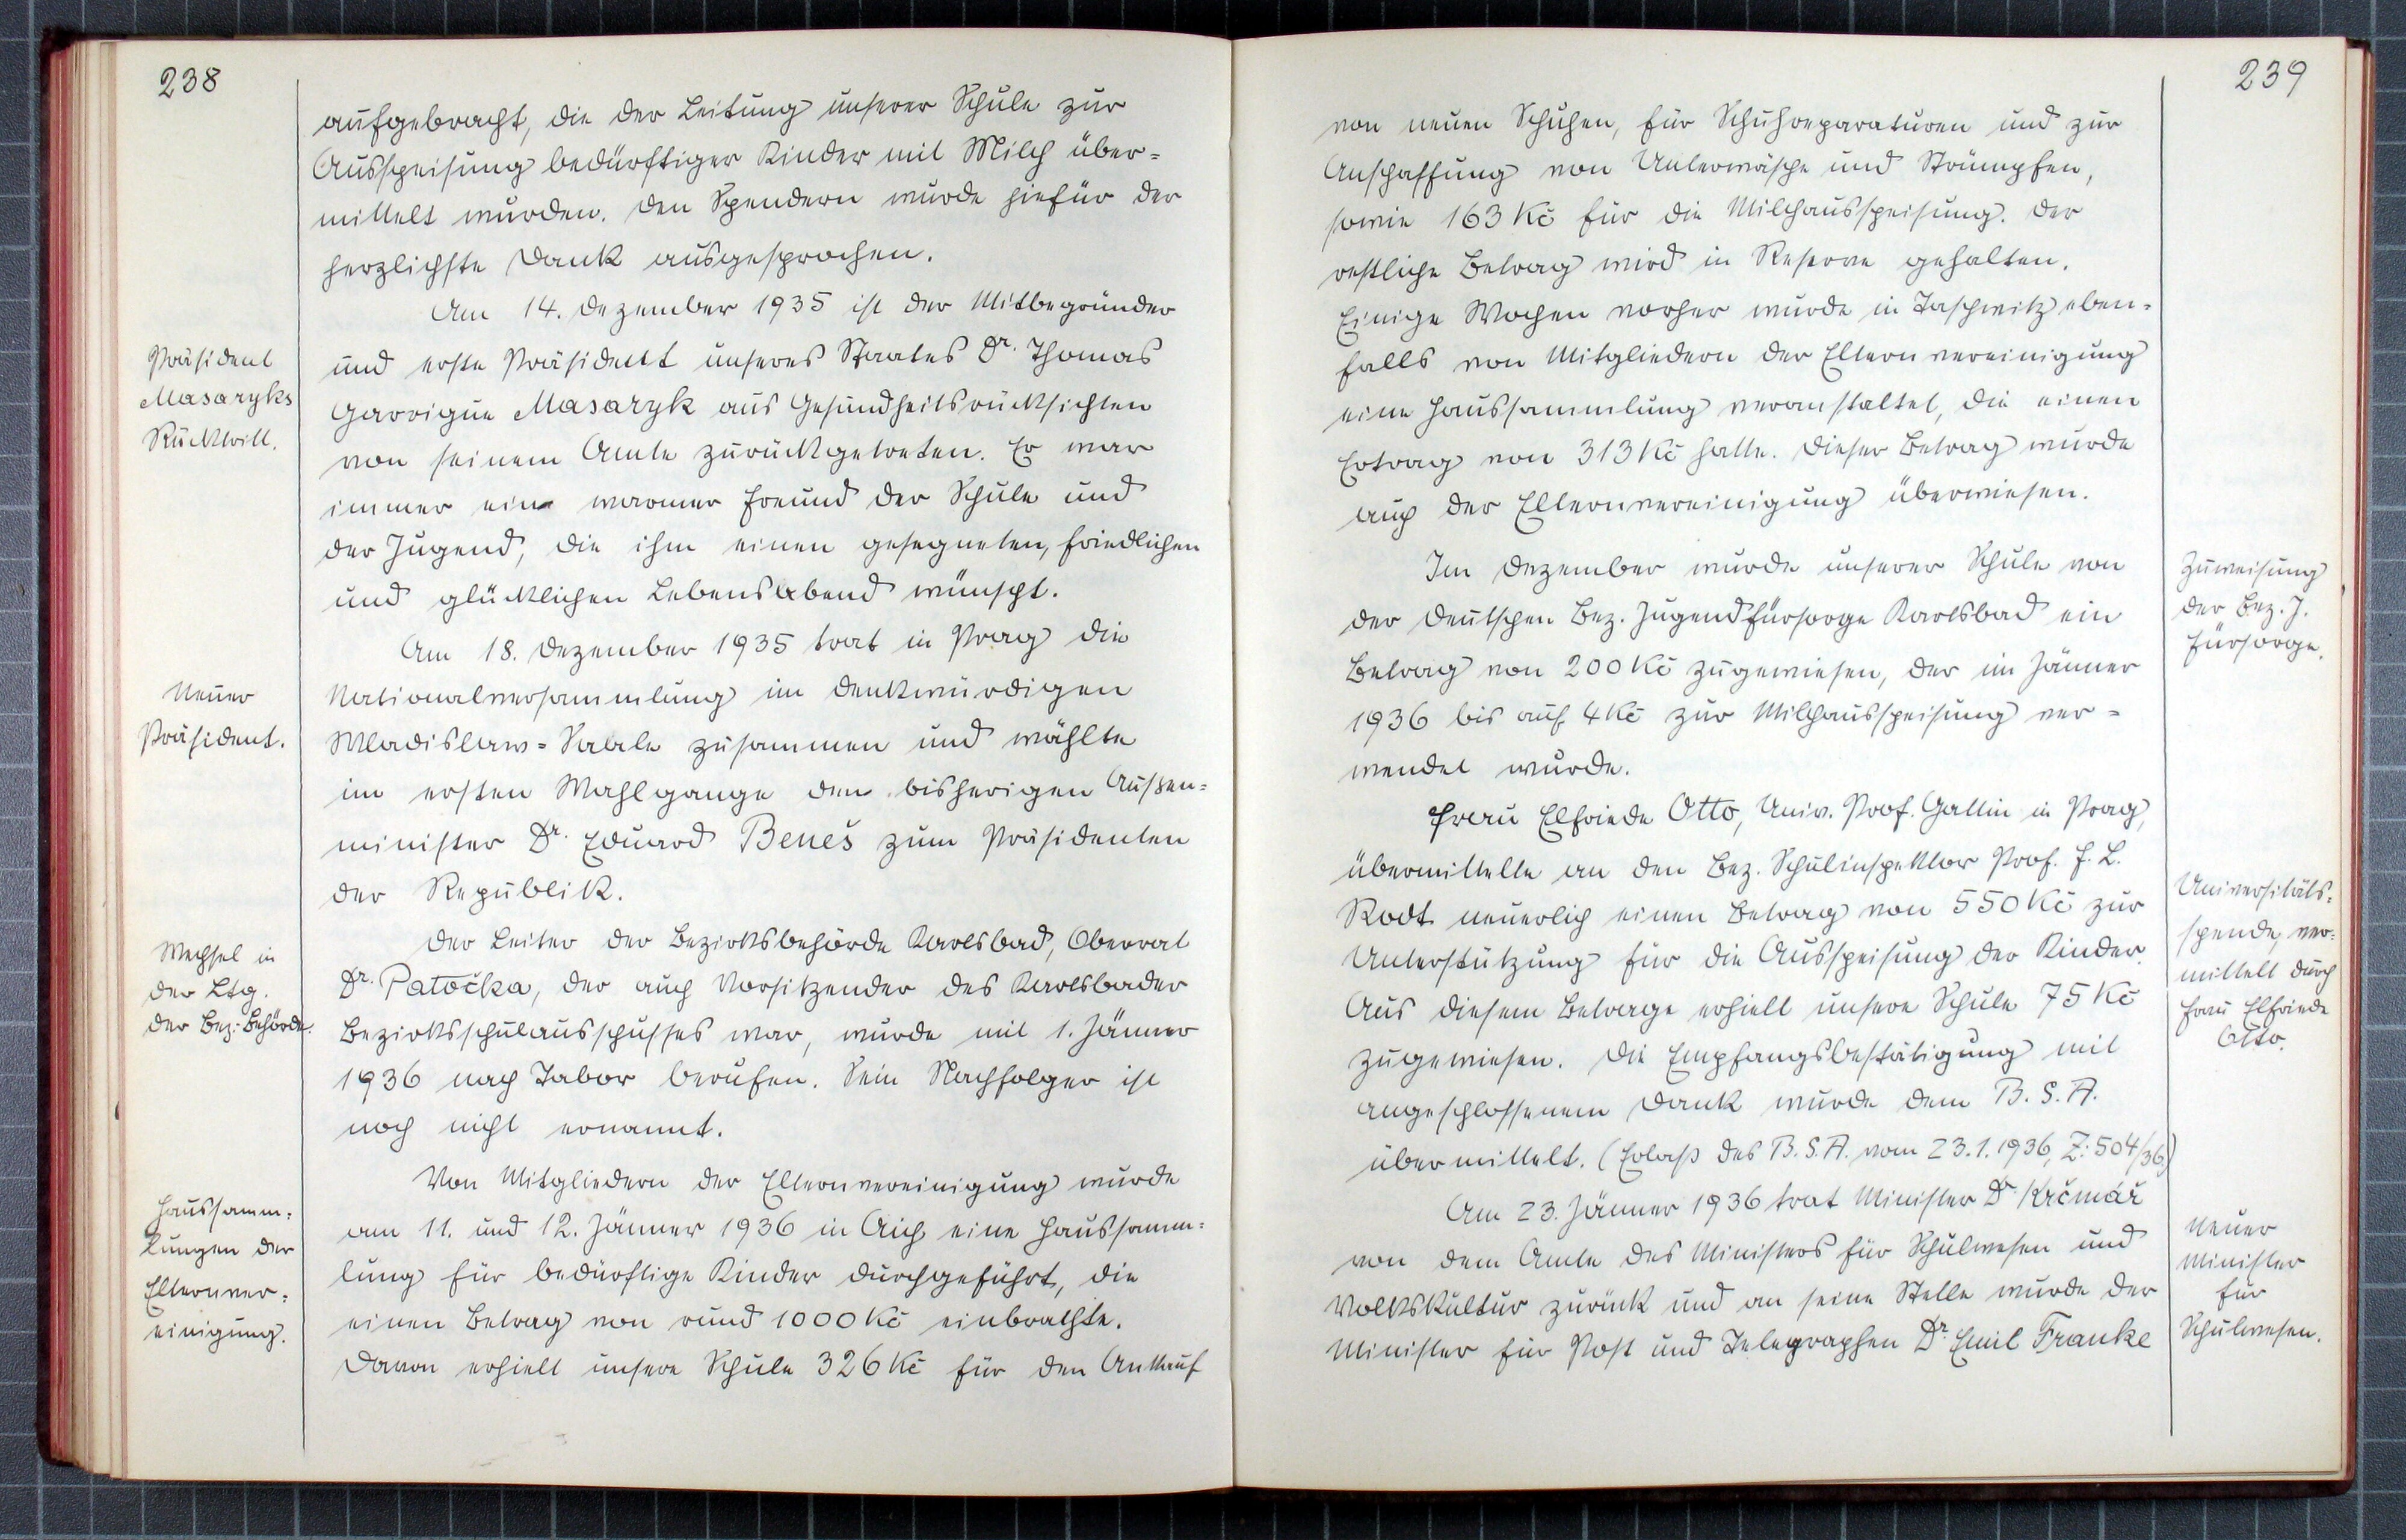 238
aufgebracht, die der Leitung unserer Schule zur
Ausspeisung bedürftiger Kinder mit Milch über=
mittelt wurden. Den Spendern wurde hiefür der
herzlichste Dank ausgesprochen.
Am 14. Dezember 1935 ist der Mitbegründer
Präsident
Masaryks
Rücktritt.
und erste Präsident unseres Staates Dr. Thomas
Garrigue Masaryk aus Gesundheitsrücksichten
von seinem Amte zurückgetreten. Er war
immer ein warmer Freund der Schule und
der Jugend, die ihm einen gesegneten, friedlichen
und glücklichen Lebensabend wünscht.
Am 18. Dezember 1935 trat in Prag die
Neuer
Präsident.
Nationalversammlung im denkwürdigen
Wladislaw=Saale zusammen und wählte
im ersten Wahlgange den bisherigen Außen=
minister Dr. Eduard Beneš zum Präsidenten
der Republik.
Wechsel in
der Ltg.
der Bez. Behörde.
Der Leiter der Bezirksbehörde Karlsbad, Oberrat
Dr. Patočka, der auch Vorsitzender des Karlsbader
Bezirksschulausschusses war, wurde mit 1. Jänner
1936 nach Tabor berufen. Sein Nachfolger ist
noch nicht ernannt.
Haussamm=
lungen der
Elternver=
einigung.
Von Mitgliedern der Elternvereinigung wurde
am 11. und 12. Jänner 1936 in Aich eine Haussamm=
lung für bedürftige Kinder durchgeführt, die
einen Betrag von rund 1000 Kč einbrachte.
Davon erhielt unsere Schule 326 Kč für den Ankauf
239
von neuen Schuhen, für Schuhreparaturen und zur
Anschaffung von Unterwäsche und Strümpfen,
sowie 163 Kč für die Milchausspeisung. Der
restliche Betrag wird in Reserve gehalten.
Einige Wochen vorher wurde in Taschwitz eben=
falls von Mitgliedern der Elternvereinigung
eine Haussammlung veranstaltet, die einen
Ertrag von 313 Kč hatte. Dieser Betrag wurde
auch der Elternvereinigung überwiesen.
Im Dezember wurde unserer Schule von
der deutschen Bez. Jugendfürsorge Karlsbad ein
Betrag von 200 Kč zugewiesen, der im Jänner
1936 bis auf 4 Kč zur Milchausspeisung ver=
wendet wurde.
Zuweisung
der Bez. J.
Fürsorge.
Frau Elfriede Otto, Univ. Prof. Gattin in Prag,
übermittelte an den Bez. Schulinspektor Prof. F. L.
Rodt neuerlich einen Betrag von 550 Kč zur
Unterstützung für die Ausspeisung der Kinder.
Aus diesem Betrage erhielt unsere Schule 75 Kč
zugewiesen. Die Empfangsbestätigung mit
angeschlossenem Dank wurde dem B. S. A.
übermittelt. (Erlaß des B. S. A. vom 23. 1. 1936, Z: 504/36)
Universitäts=
spende, ver=
mittelt durch
Frau Elfriede
Otto.
Am 23. Jänner 1936 trat Minister Dr. Krčmář
von dem Amte des Ministers für Schulwesen und
Volkskultur zurück und an seine Stelle wurde der
Minister für Post und Telegraphen Dr. Emil Franke
Neuer
Minister
für
Schulwesen.